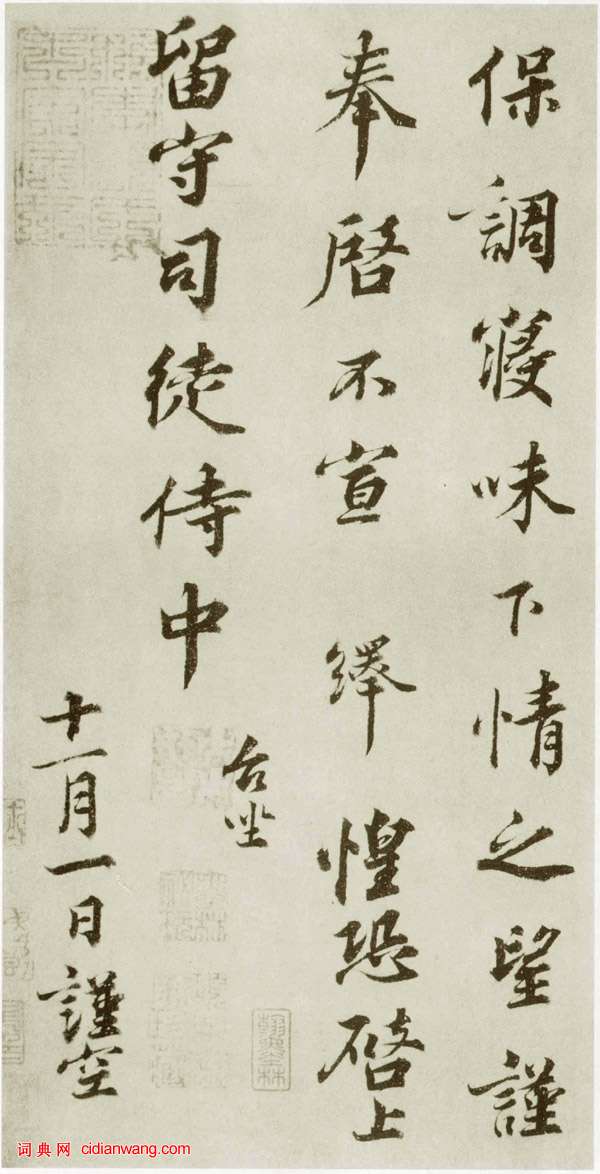 保調寢味下情之望謹
奉啓不宣 繹惶恐啓上
留守司徒侍中
台坐
十一月一日謹空
词典网 cidianwang.com